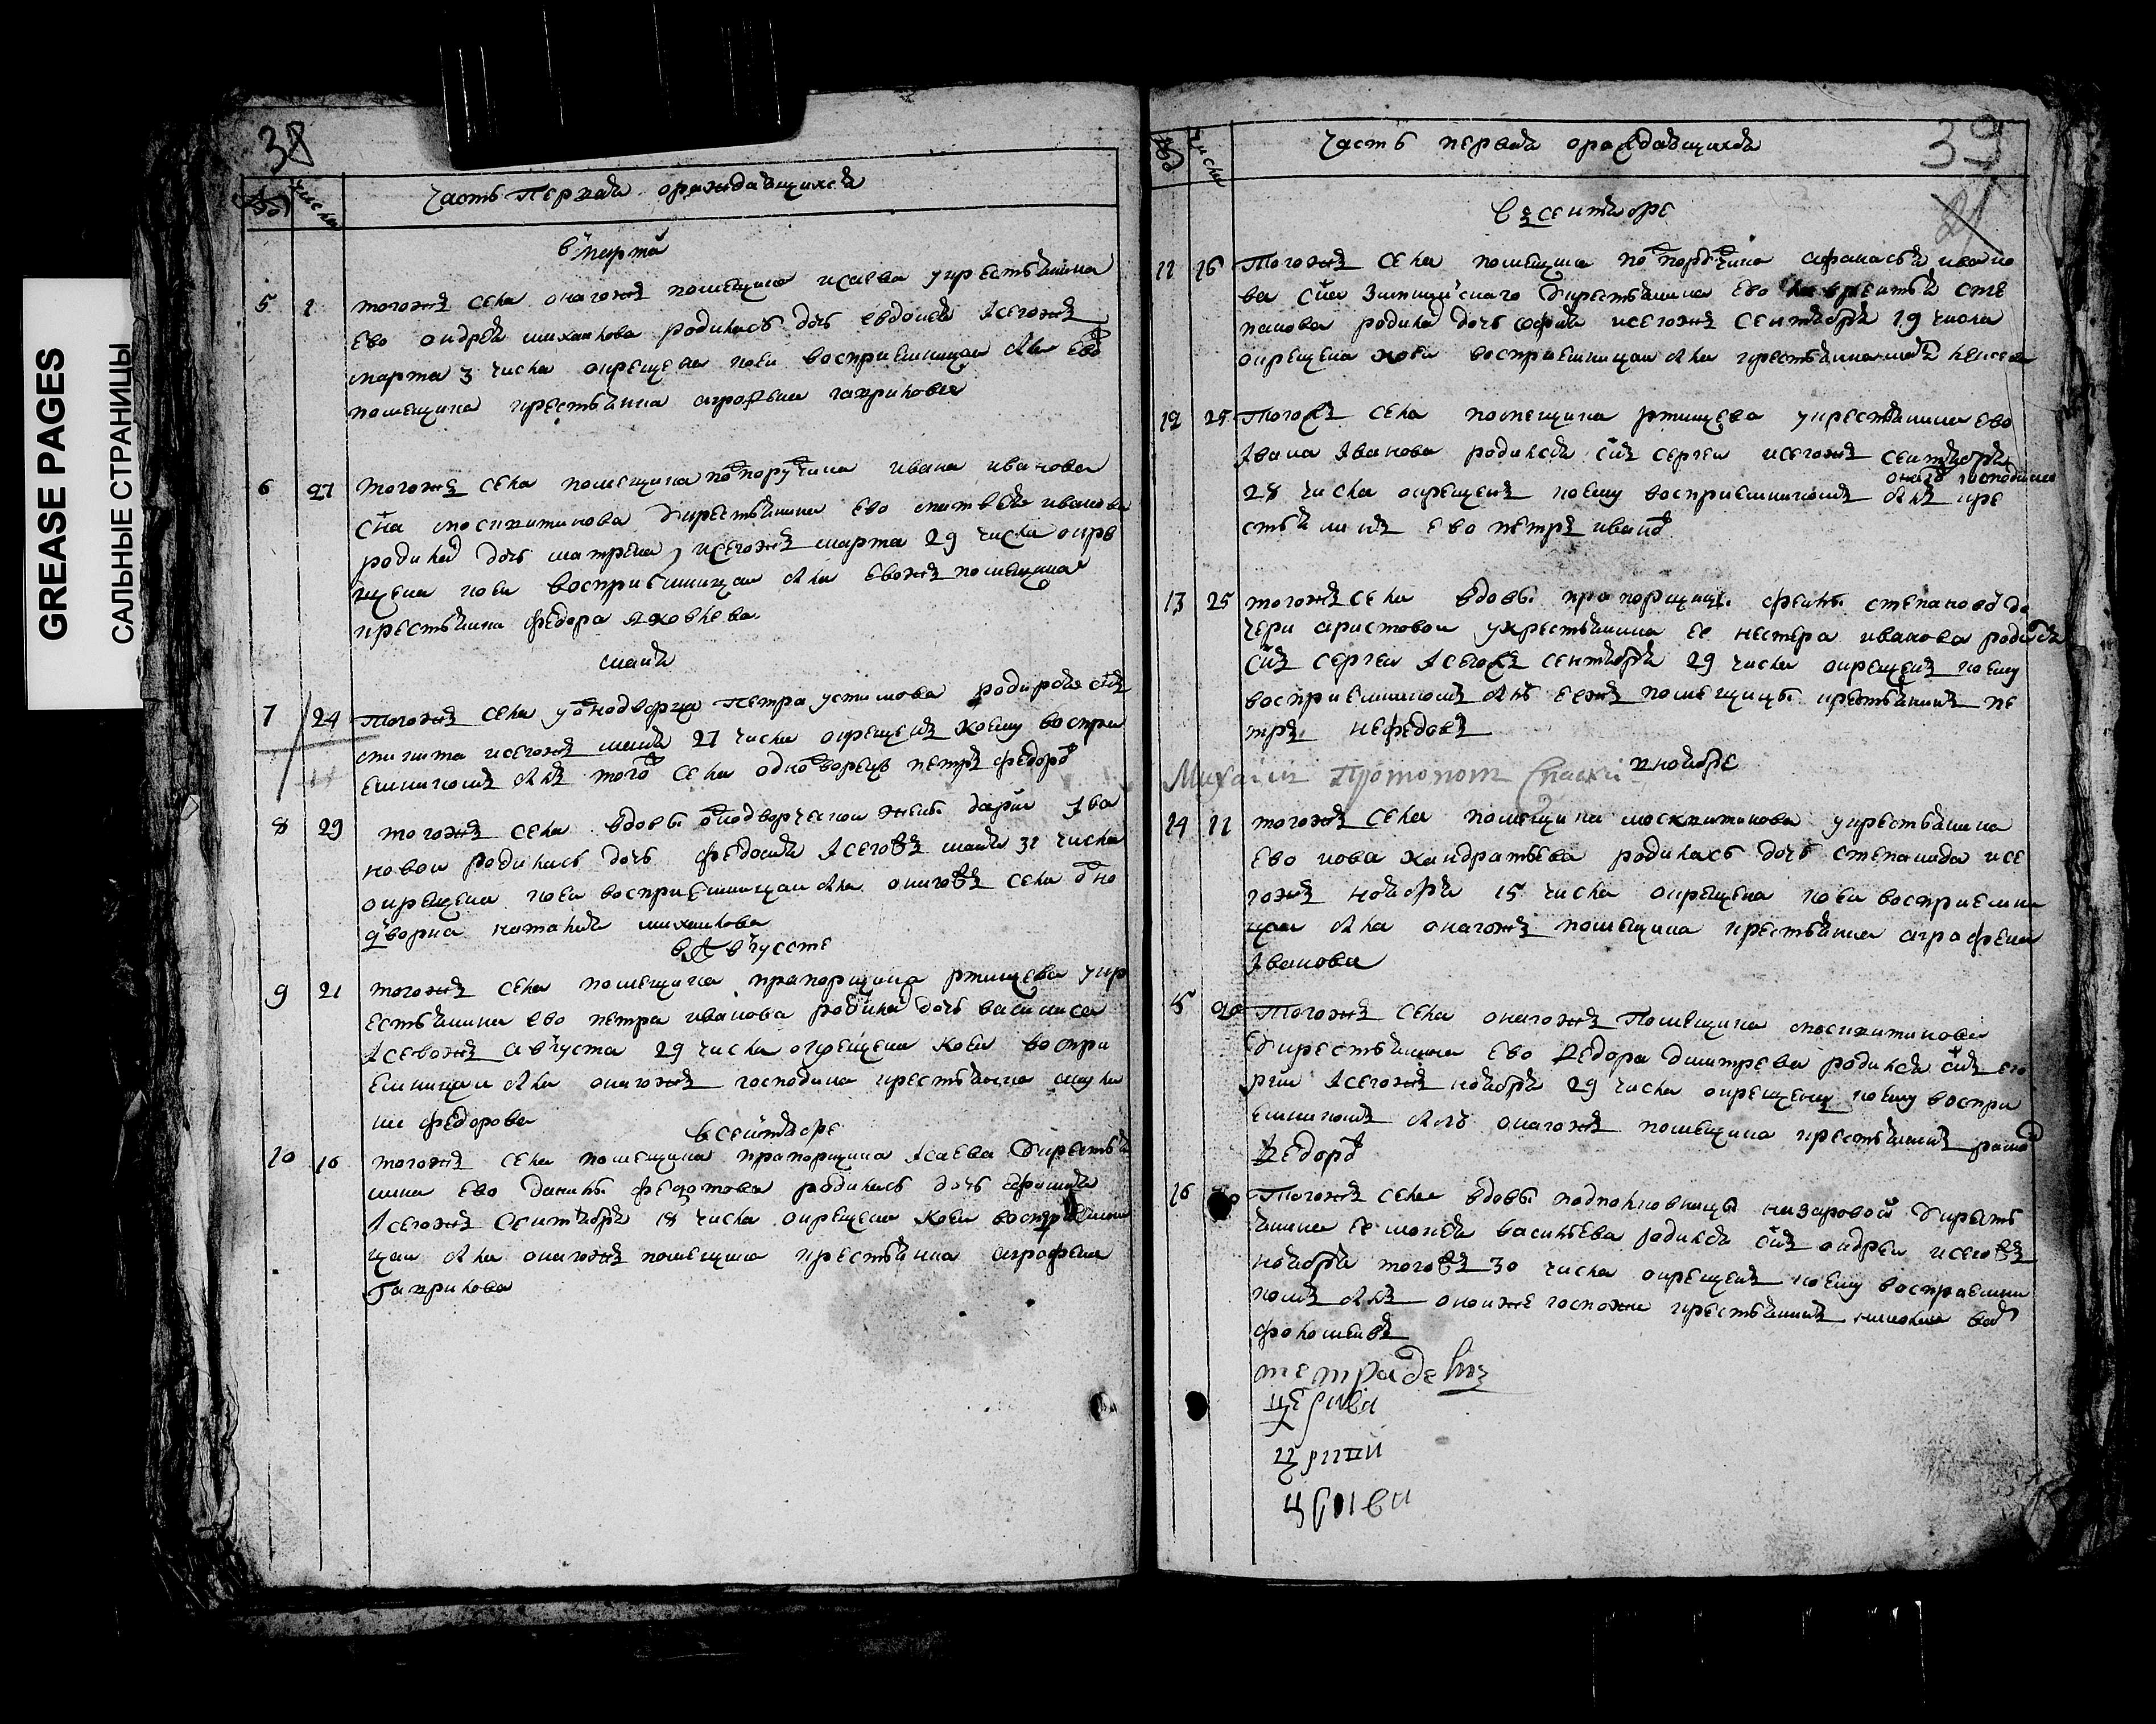 GREASE PAGES
САЛЬНЫЕ СТРАНИЦЫ
38
числа
часть Первая ораждающихся
в марте
5 1 тогожъ села оногожъ помещика исаева укрестьянина
ево андрея михаилова родилась дочь евдокея исегожъ
марта 3 числа окрещена коеи восприемницаи была ево
помещика крестьянка аграфена гаврилова
6 27 тогожъ села помещика подпоручика ивана иванова
сна москотинова укрестьянина ево матвея иванова
родилас дочь матрена исегожъ марта 29 числа окре
щена коеи восприемницаи была евожъ помещика
крестьянка федора яковлева
мая
7 24 Тогожъ села уоднодворца Петра устинова родился снъ
никита исегожъ мая 27 числа окрещенъ коему воспри
емникомъ былъ того села однодворецъ петръ федоров
8 29 тогожъ села вдовы однодворческои жены дарьи Ива
новои родилась дочь федосия Ісегожъ мая 31 числа
окрещена коеи восприемницаи была оногожъ села одно
дворка наталия михаилова
в Августе
9 21 тогожъ села помещика прапорщика ртищева укр
естьянина ево петра иванова родилас дочь василиса
Ісегожъ августа 29 числа окрещена коеи воспри
емницаи была оногожъ господина крестьянка
федорова
в сентябре
10 16 тогожъ села помещика прапорщика Ісаева укрестья
нина ево данилы федотова родилась дочь
Ісегожъ Сентября 18 числа окрещена коеи восприемни
цаи была оногожъ помещика крестьянка аграфена
Гаврилова
39
числа
Часть первая ораждающихся
въ сентябре
11 16 Тогожъ села помещика подпоручика афанасья ивано
ва сна укрестьянина ево лаврентья сте
панова родилас дочь софия исегожъ Сентября 19 числа
окрещена коеи восприемницаи была крестьянка
12 25 Тогожъ села помещика ртищева укрестьянина ево
Ивана Иванова родился снъ сергеи исегожъ сентября
28 числа окрещенъ коему восприемникомъ былъ оного господина кре
стьянинъ ево петръ иванов
13 25 тогожъ села вдовы прапорщицы феклы степановои до
чери аристовои укрестьянина ее нестера иванова родился
снъ Сергеи Ісегожъ сентября 29 числа окрещенъ коему
восприемникомъ былъ ееяжъ помещицы крестьянинъ пе
тръ нефедовъ
в ноябре
Михаилъ Протопопъ Спаски
14 11 тогожъ села помещика москотинова укрестьянина
ево иова кандратьева родилась дочь степанида исе
гожъ ноября 15 числа окрещена коеи восприемни
цаи была оногожъ помещика крестьянка аграфена
Іванова
15 Тогожъ села оногожъ Помещика москотинова
укрестьянина ево Федора дмитрева родился снъ его
рии Ісегожъ ноября 29 числа окрещенъ коему воспри
емникомъ былъ оногожъ помещика крестьянинъ
Федоров
16 Тогожъ села вдовы подполковницы назаровои укресть
янина ее василева родился снъ андреи исегожъ
ноября тогожъ 30 числа окрещенъ коему восприемни
комъ былъ оноиже госпожи крестьянинъ